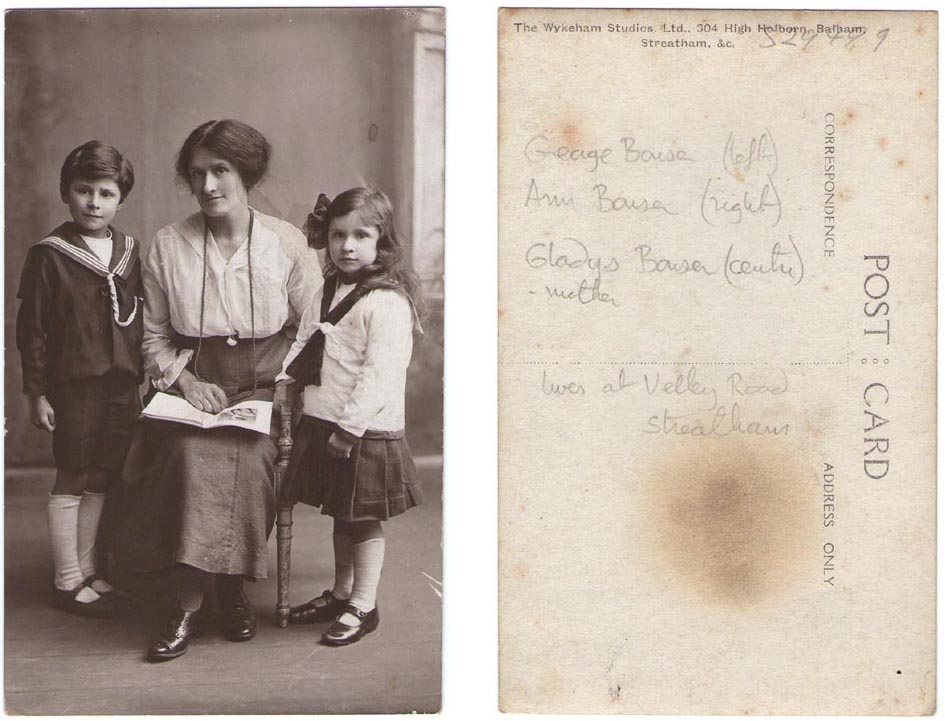 The Wykeham Studios, Ltd., 304 High Holborn, Balham,
Streatham, &c.
George Bowser (left)
Ann Bowser (right)
Gladys Bowser (centre)
- mother
CORRESPONDENCE
POST CARD
lives at Valley Road
Streatham
ADDRESS ONLY